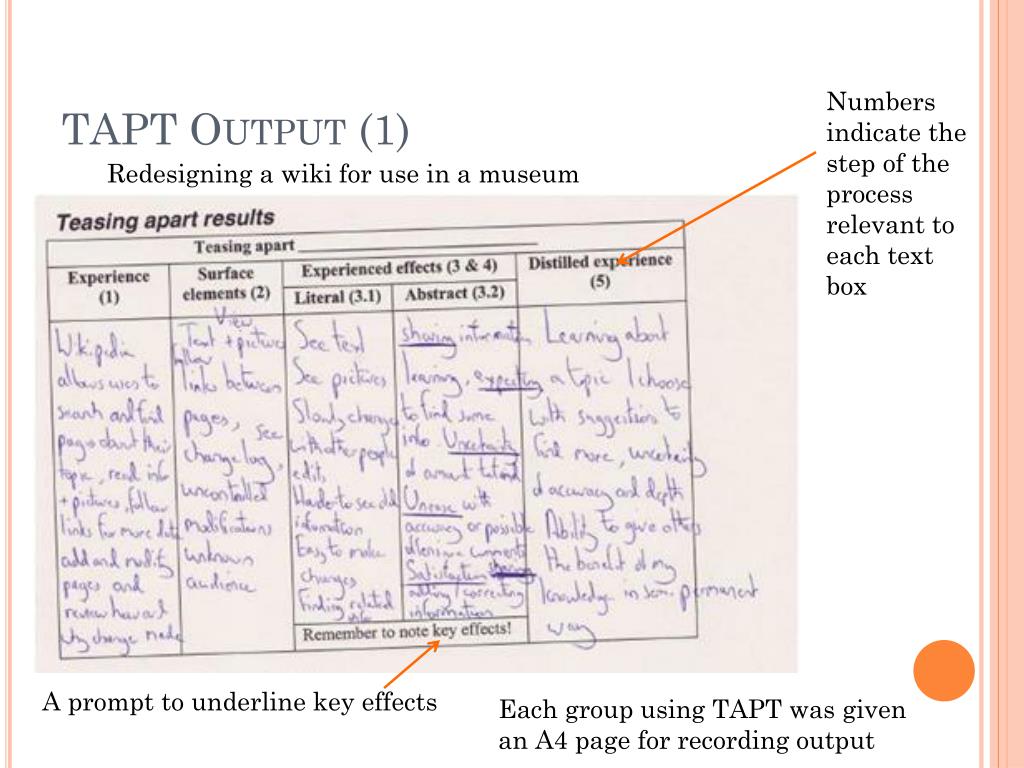 TAPT OUTPUT (1)
Redesigning a wiki for use in a museum
Numbers
indicate the
step of the
process
relevant to
each text
box
Teasing apart results
Teasing apart
Experience
(1)
Surface
elements (2)
Experienced effects (3 & 4)
Literal (3.1)
Abstract (3.2)
Distilled experience
(5)
Wikipedia
allows users to
search and find
pages about their
topic, read info
+ pictures, follow
links for more
add and modify
pages and
review how and
why change made
View
Text + pictures
follow
links between
pages, see
change log,
uncontrolled
modifications
unknown
audience
See text
See pictures
Slowly change
with other people
edits,
Harder to see old
information
Easy to make
changes
Finding related
info
sharing information
learning, expecting
to find some
info. Uncertainty
of amount
Unease with
accuracy or possible
offensive comments
Satisfaction
adding/correcting
information
Remember to note key effects!
Learning about
a topic I choose
with suggestions to
find more, uncertainty
of accuracy and depth
Ability to give others
the benefit of my
knowledge in semi permanent
way
A prompt to underline key effects
Each group using TAPT was given
an A4 page for recording output